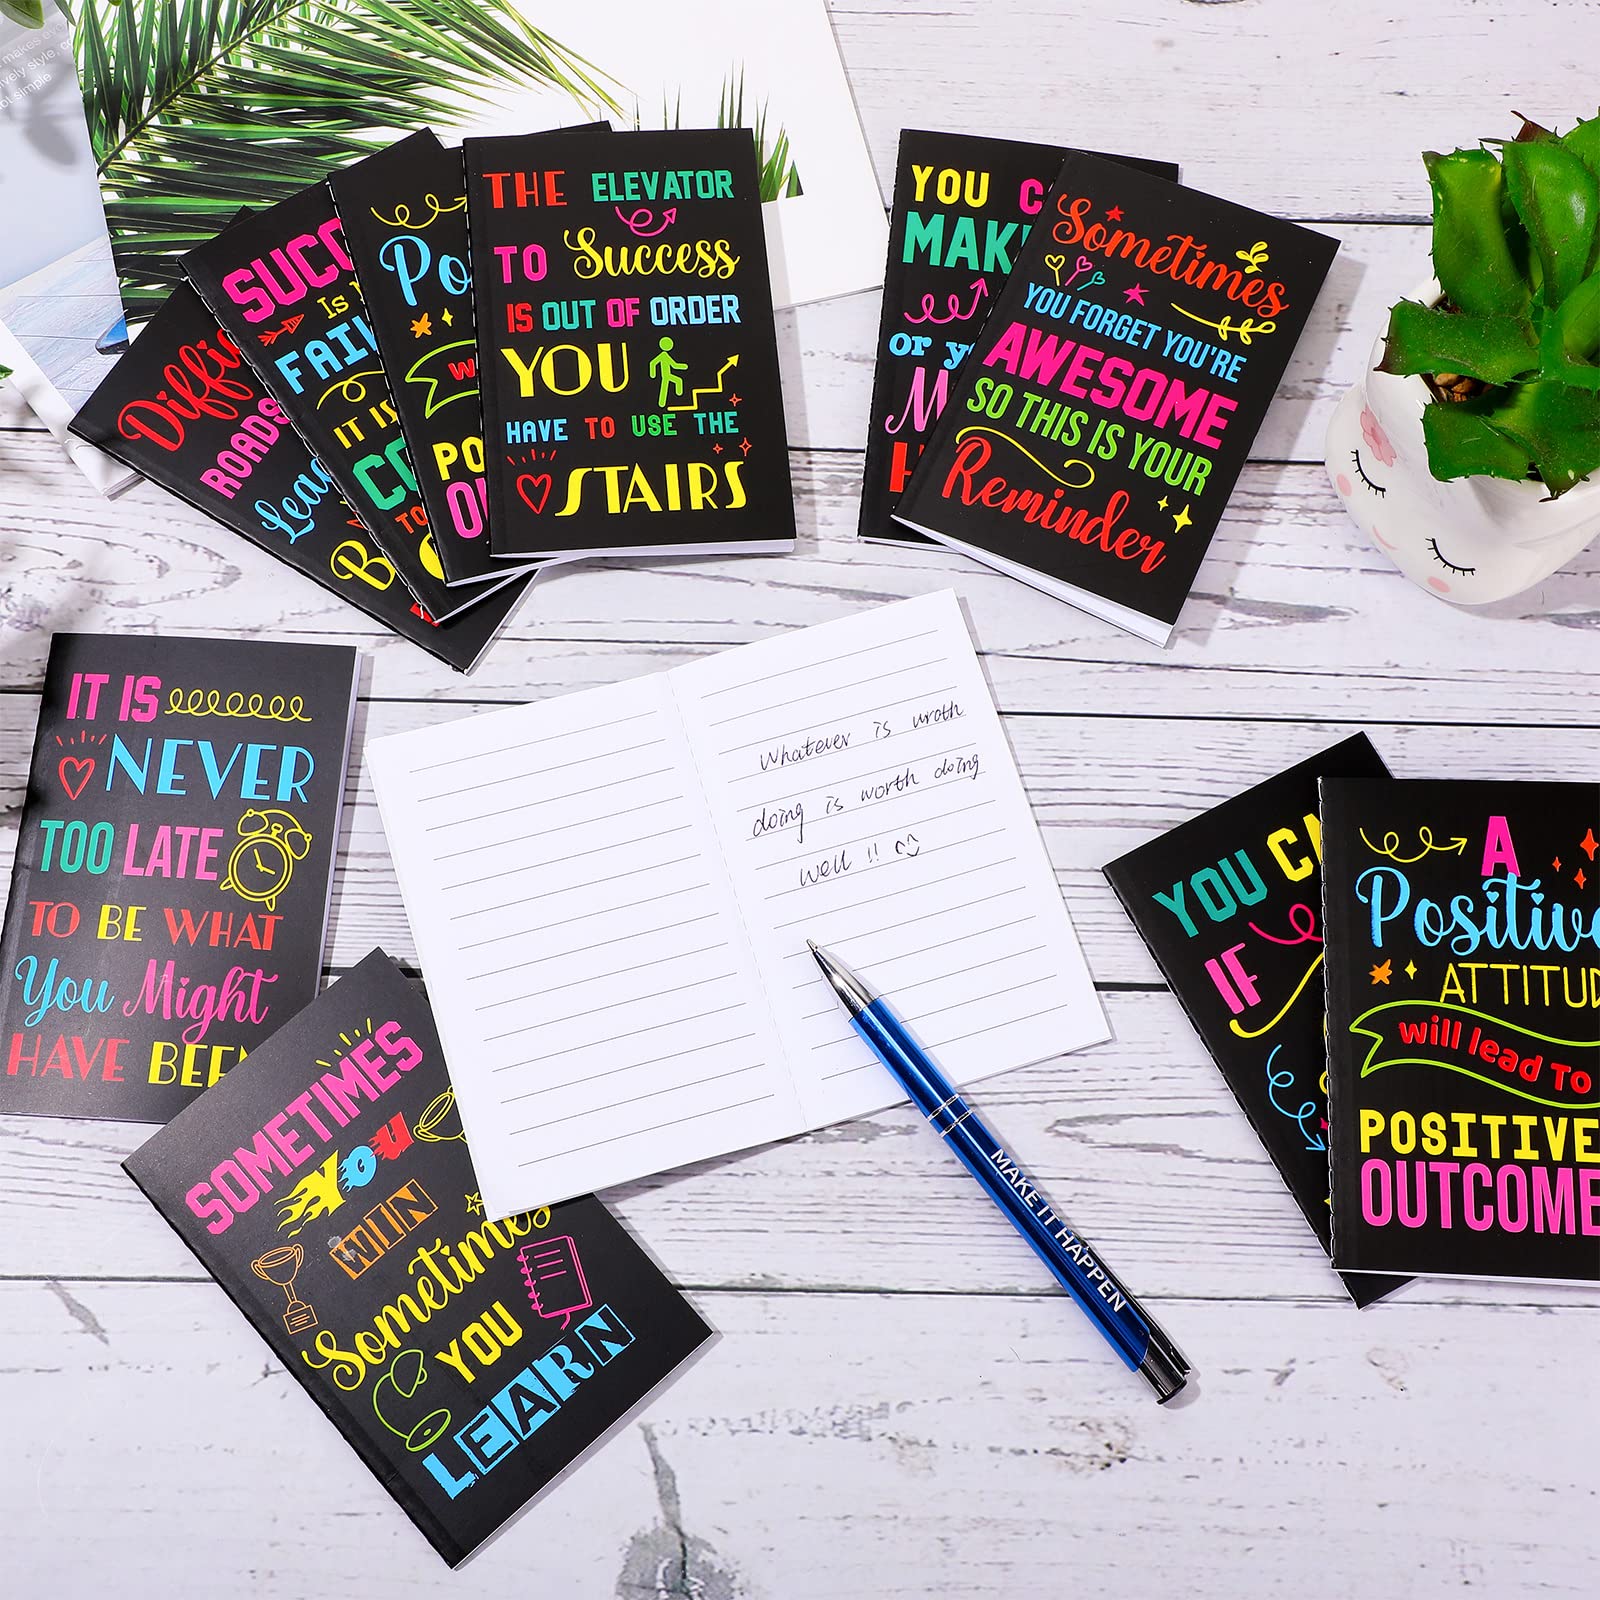 makes eve
vely style, co
ot simple
Diffic
ROADS
Lead
B
SUCC
IS N
FAIL
IT IS
CO
TO
Po
W
PO
OU
THE ELEVATOR
TO Success
IS OUT OF ORDER
YOU
HAVE TO USE THE
STAIRS
YOU C
MAK
or y
M
H
Sometimes
YOU FORGET YOU'RE
AWESOME
SO THIS IS YOUR
Reminder
IT IS
NEVER
TOO LATE
TO BE WHAT
You Might
HAVE BEEN
Whatever is wroth
doing is worth doing
well !!
SOMETIMES
YOU
WIN
Sometimes
YOU
LEARN
MAKE IT HAPPEN
YOU CA
IF
A
Positive
ATTITUD
will lead TO
POSITIVE
OUTCOME